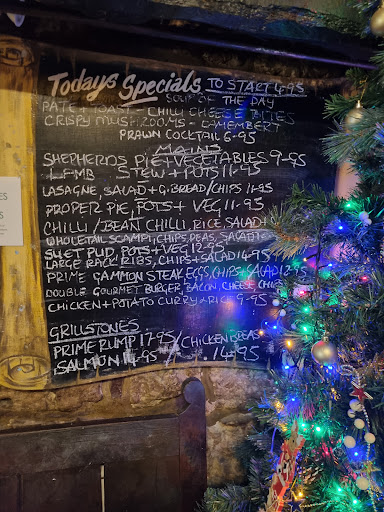 Todays Specials TO START 4-95
SOUP OF THE DAY
PATE + TOAST - CHILLI CHEESE BITES
CRISPY MUSHROOMS - CAMEMBERT
PRAWN COCKTAIL 6-95
MAINS
SHEPHERDS PIE + VEGETABLES 9-95
LAMB STEW + POTS 11-95
LASAGNE, SALAD + G. BREAD/CHIPS 11-95
PROPER PIE, POTS + VEG 11-95
CHILLI/BEAN CHILLI, RICE, SALAD
WHOLETAIL SCAMPI, CHIPS, PEAS, SALAD
SUET PUD, POTS + VEG 12-95
LARGE RACK RIBS, CHIPS + SALAD 14-95
PRIME GAMMON STEAK, EGGS, CHIPS + SALAD
DOUBLE GOURMET BURGER, BACON, CHEESE, CHIPS
CHICKEN + POTATO CURRY + RICE 9-95
GRILLSTONES
PRIME RUMP 17-95/CHICKEN BREAST
SALMON 14-95 14-95